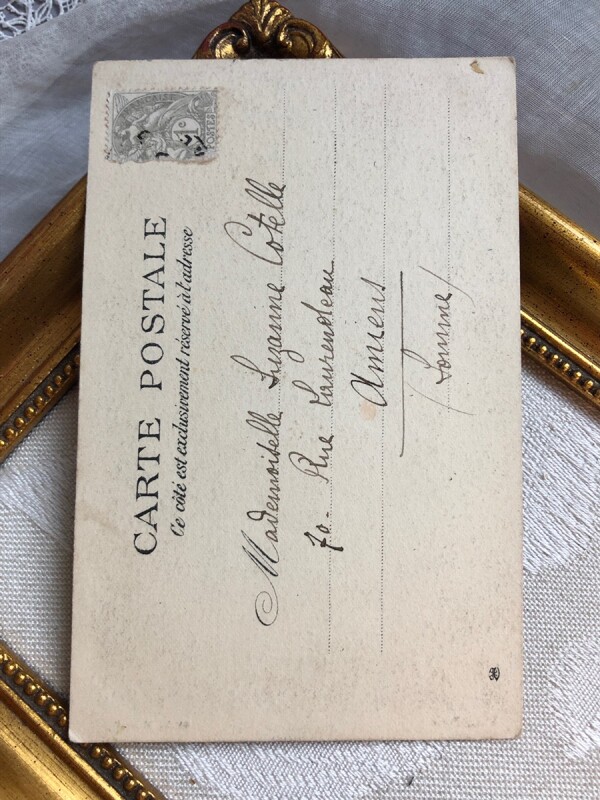 CARTE POSTALE
Ce côté est exclusivement réservé à l'adresse
1c
POSTES
Mademoiselle Suzanne Cotelle
70 - Rue Laurendeau
Amiens
(Somme)